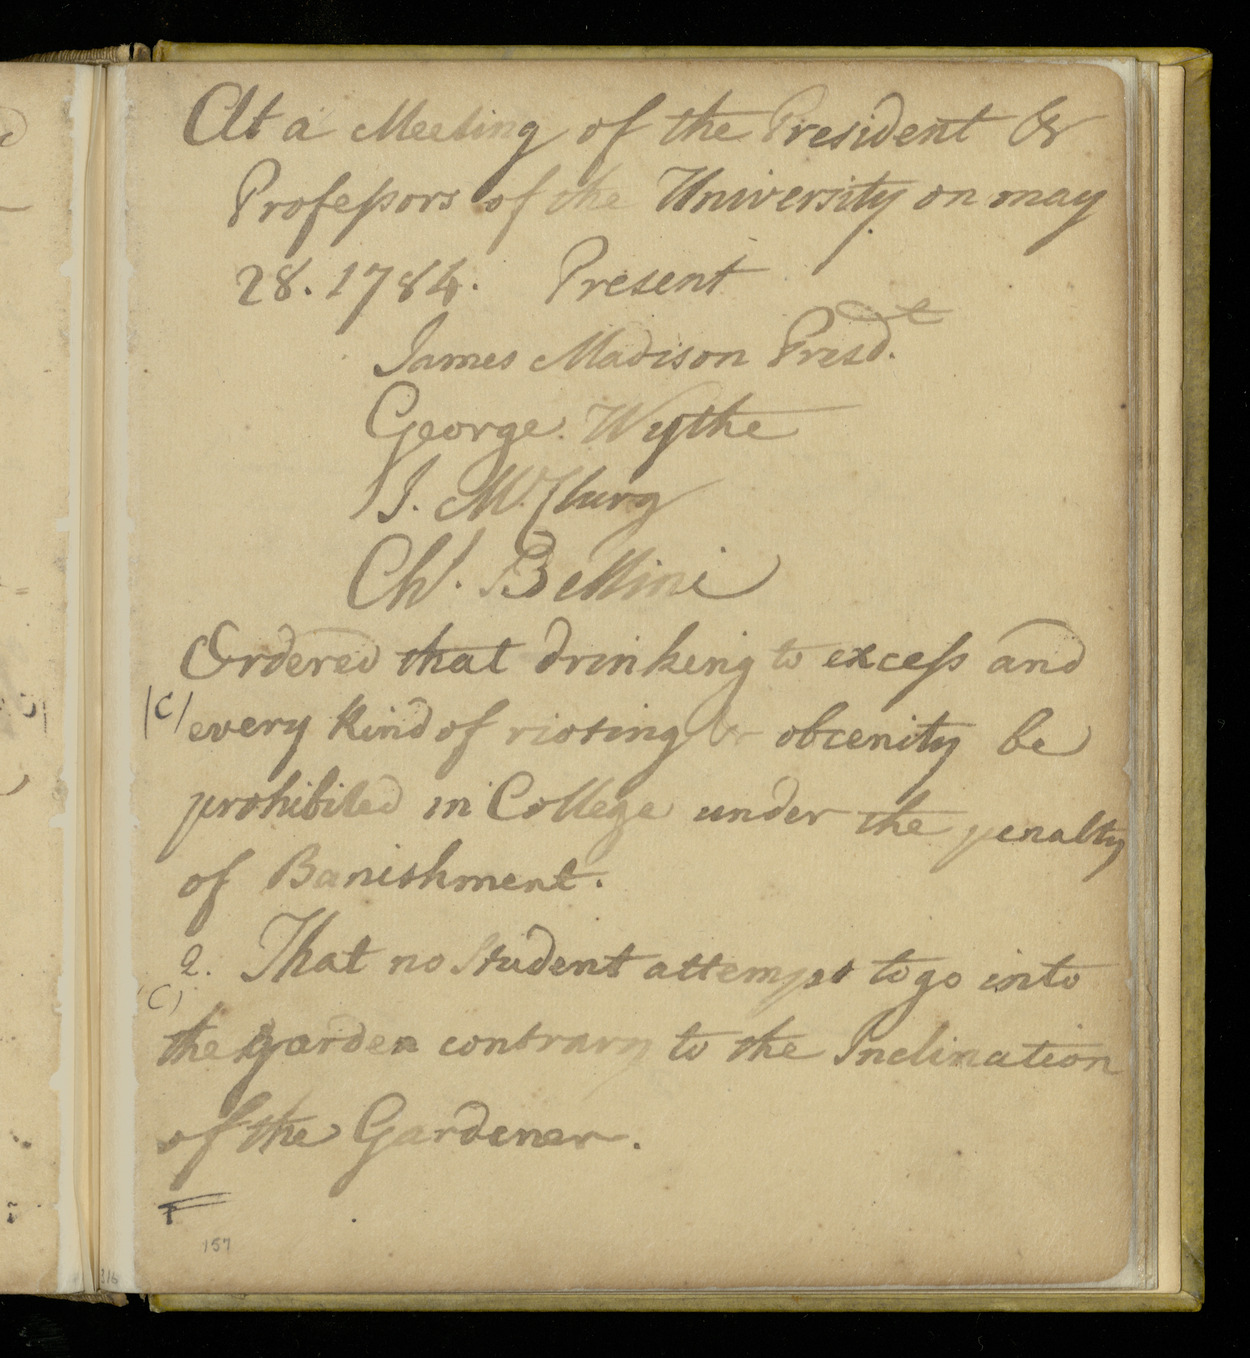 At a Meeting of the President &
Professors of the University on may
28. 1784. Present
James Madison Presdt.
George Wythe
J. McClurg
Chs. Bellini
Ordered that drinking to excess and
(C) every kind of rioting or obcenity be
prohibited in College under the penalty
of Banishment.
2. That no Student attempt to go into
(C)
the garden contrary to the Inclination
of the Gardener.
157